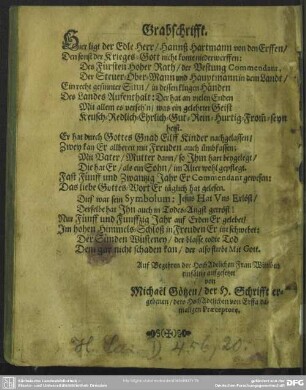 Grabschrifft.
Hier ligt der Edle Herr/ Hannß Hartmann von den Erffen/
Den sonst der Krieges-Gott nicht konte niderwerffen:
Des Fürsten Hoher Rath/ der Vestung Commendant,
Der Steuer-Ober-Mann und Hauptmann in dem Land/
Ein recht gesunter Sinn/ in dessen klugen Händen
Des Landes Auffenthalt: Der hat an vielen Enden
Mit allem es verseh'n; was ein gelehrter Geist
Keusch-Redlich-Ehrlich-Gut-Rein-Hurtig-From-seyn
heist.
Er hat durch Gottes Gnad Eilff Kinder nachgelassen/
Zwey kan Er allbereit mit Freuden auch ümbfassen:
Mit Vater/ Mutter dann/ so Ihm hart beygelegt/
Die hat Er/ als ein Sohn/ im Alter wohl gepflegt.
Fast Fünff und Zwantzig Jahr Er Commendant gewesen:
Das liebe Gottes Wort Er täglich hat gelesen.
Diß war sein Symbolum: Jesus Hat Vns Erlöst/
Derselbe hat Ihn auch in Todes-Angst getröst:
Nur Fünff und Funfftzig Jahr auf Erden Er gelebet/
Im hohen Himmels-Schloß in Freuden Er itzt schwebet:
Der Sünden Wüsteney/ der blasse todte Tod
Dem gar nicht schaden kan/ der
Auf Begehren der HochAdelichen Frau Wittben
einfältig auffgesetzet
von
Michaël Götzen/ der H. Schrifft er-
gebenen/ derer HochAdelichen von Erffa
maligen Præceptore.
H. 456, 20.